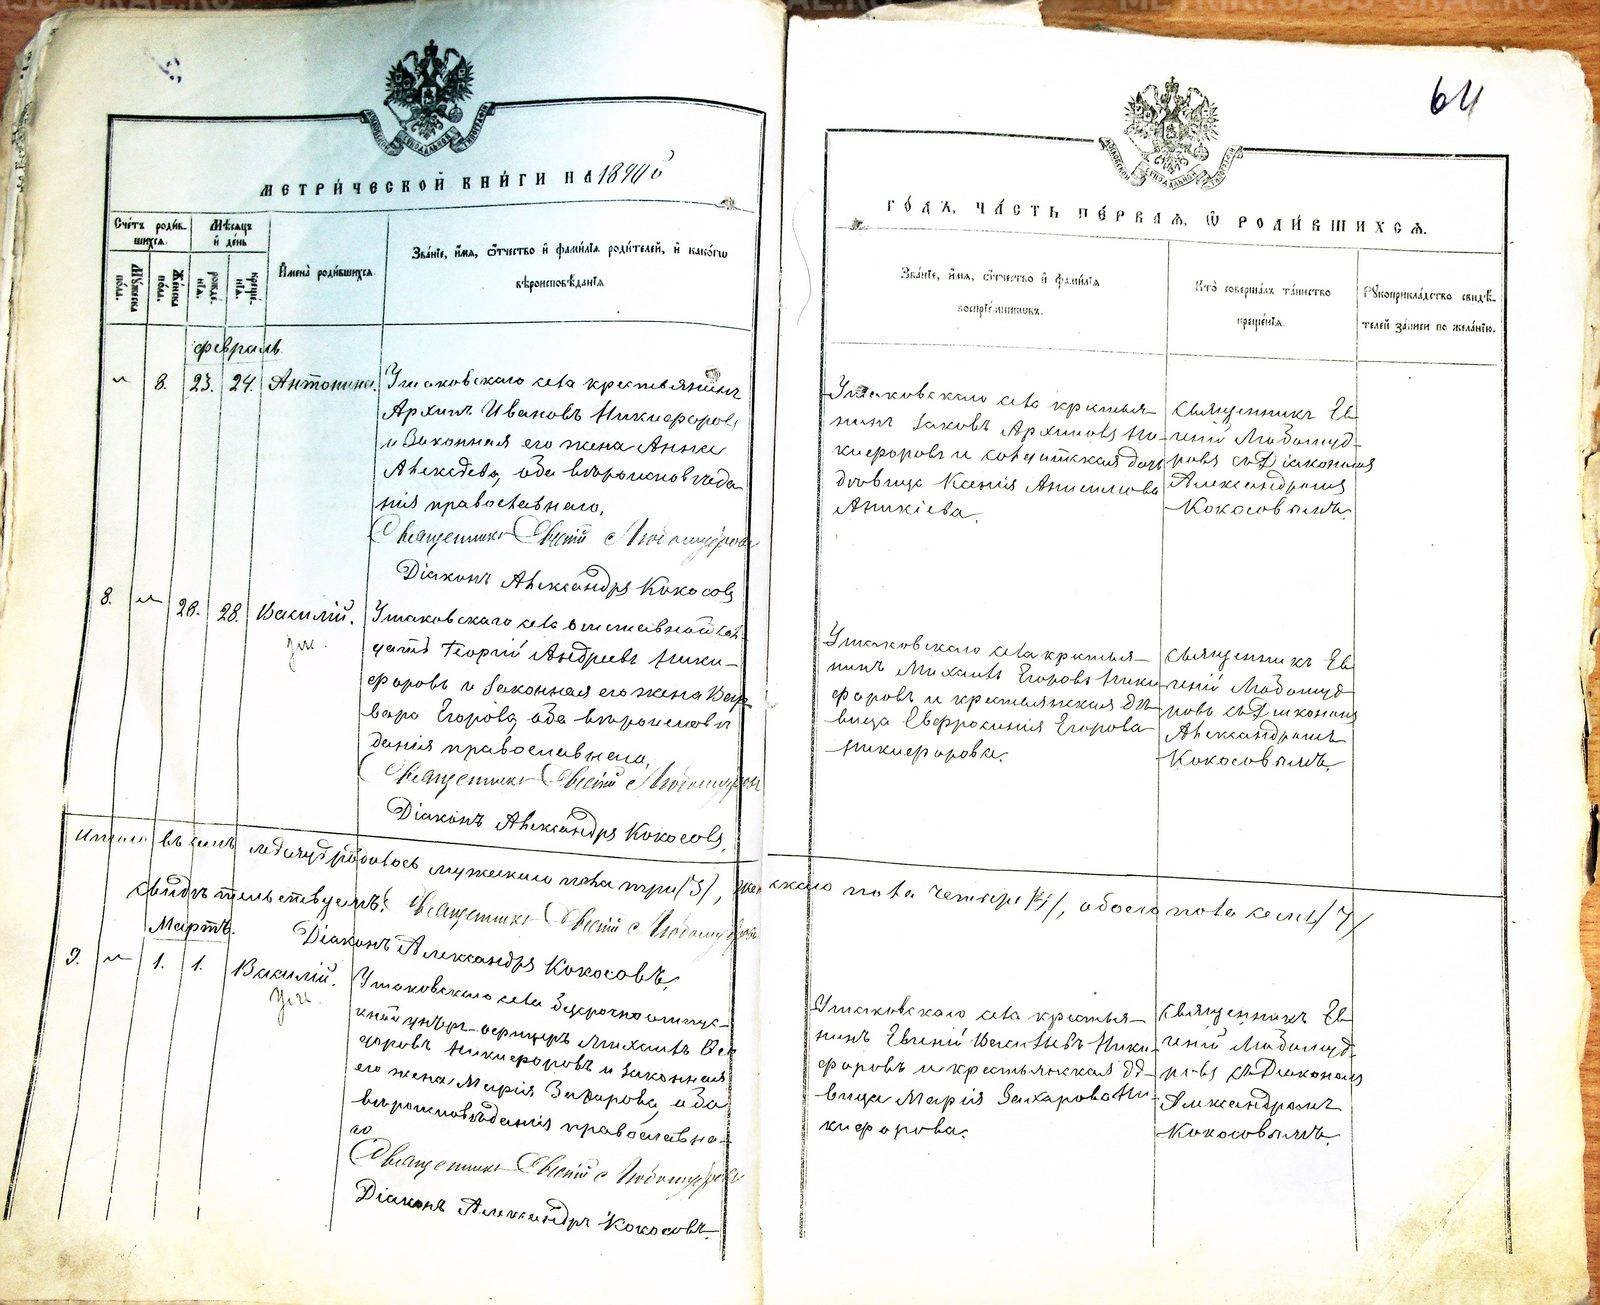 64
МОСКОВСКОЙ СѴНОДАЛЬНОЙ ТИПОГРАФІИ
МОСКОВСКОЙ СѴНОДАЛЬНОЙ ТИПОГРАФІИ
МЕТРИ́ЧЕСКОЙ КНИ́ГИ НА
ГО́ДЪ, ЧА́СТЬ ПЕ́РВАЯ, Ѡ РОДИ́ВШИХСЯ.
Сче́тъ роди́в-
шихся.
Му́жеска
по́ла.
Же́нска
по́ла.
Мѣ́сяцъ
и҆ де́нь
рожде́-
нїѧ.
креще́-
нїѧ.
И҆мена̀ роди́вшихся.
Зва́нїе, и҆́мя, ѻ҆́тчество и҆ фами́лїя роди́телей, и҆ како́гѡ
вѣроисповѣ́данїя
Зва́нїе, и҆́мя, ѻ҆́тчество и҆ фами́лїя
воспрїе́мниковъ.
Кто̀ соверша́лъ та́инство
креще́нїя.
Рукоприкла́дство свидѣ́-
телей за́писи по жела́нїю.
Февраль
„ 8. 23. 24. Антонина.
Ушаковскаго села крестьянинъ
Архипъ Ивановъ Никифоровъ
и законная его жена Анна
Алексѣева, оба вѣроисповѣда-
нія православнаго.
Священникъ Евгеній Любомудровъ
Діаконъ Александръ Кокосовъ
Ушаковскаго села крестья-
нинъ Іаковъ Архиповъ Ни-
кифоровъ и солдатская дочь
дѣвица Ксенія
Аникіева.
Священникъ Ев-
геній Любомуд-
ровъ съ Діакономъ
Александромъ
Кокосовымъ.
8. „ 26. 28. Василій.
ум.
Ушаковскаго села отставной сол-
датъ Георгій Андреевъ Ники-
форовъ и законная его жена Вар-
вара Егорова, оба вѣроисповѣ-
данія православнаго.
Священникъ Евгеній Любомудровъ
Діаконъ Александръ Кокосовъ.
Ушаковскаго села крестья-
нинъ Михаилъ Егоровъ Ники-
форовъ и крестьянская дѣ-
вица Евфросинія Егорова
Никифорова.
Священникъ Ев-
геній Любомуд-
ровъ съ Діакономъ
Александромъ
Кокосовымъ.
Итого въ семъ мѣсяцѣ родилось мужескаго пола три /3/, женскаго пола четыре /4/, обоего пола семь /7/
Свидѣтельствуемъ: Священникъ Евгеній Любомудровъ
Діаконъ Александръ Кокосовъ.
Мартъ.
9. „ 1. 1. Василій.
ум.
Ушаковскаго села безсрочно отпус-
кной унтеръ-офицеръ Михаилъ
Никифоровъ и законная
его жена Марія Захарова, оба
вѣроисповѣданія православна-
го
Священникъ Евгеній Любомудровъ
Діаконъ Александръ Кокосовъ.
Ушаковскаго села крестья-
нинъ Евгеній Васильевъ Ники-
форовъ и крестьянская дѣ-
вица Марія Захарова Ни-
кифорова.
Священникъ Ев-
геній Любомуд-
ровъ съ Діакономъ
Александромъ
Кокосовымъ.